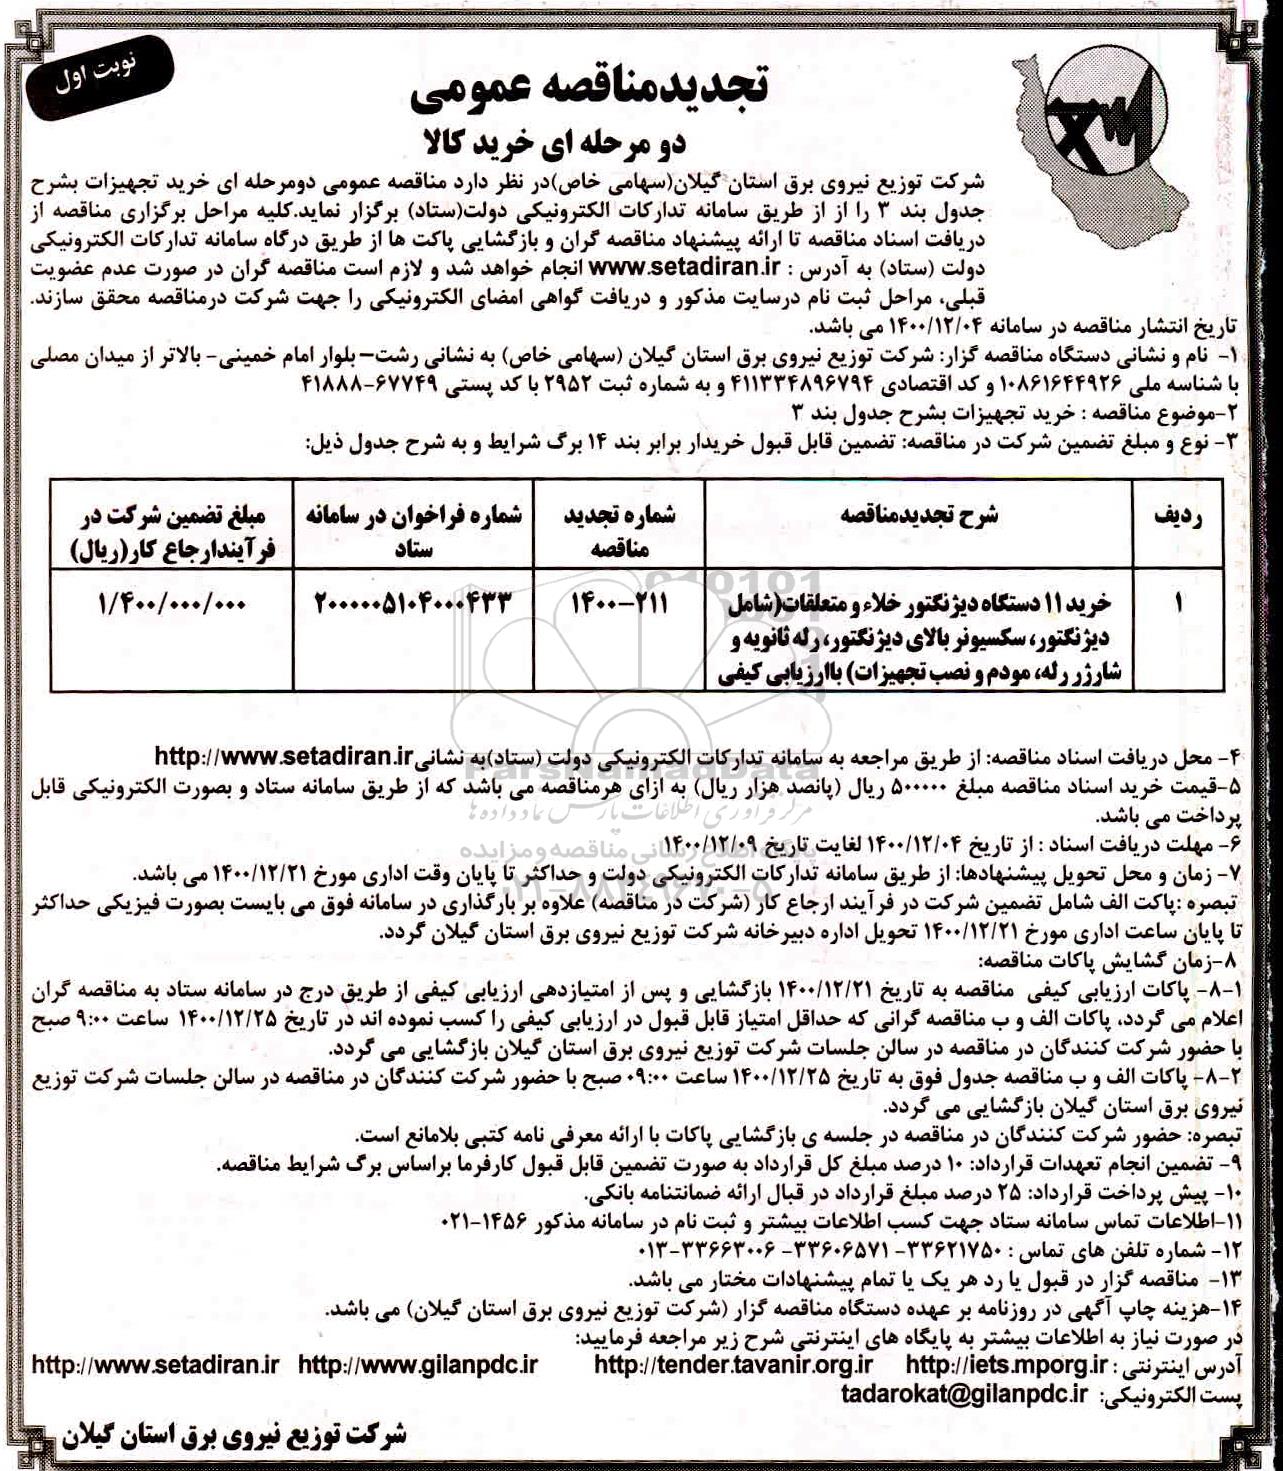 نوبت اول
تجدیدمناقصه عمومی
دو مرحله ای خرید کالا
شرکت توزیع نیروی برق استان گیلان(سهامی خاص)در نظر دارد مناقصه عمومی دومرحله ای خرید تجهیزات بشرح
جدول بند ۳ را از از طریق سامانه تدارکات الکترونیکی دولت(ستاد) برگزار نماید.کلیه مراحل برگزاری مناقصه از
دریافت اسناد مناقصه تا ارائه پیشنهاد مناقصه گران و بازگشایی پاکت ها از طریق درگاه سامانه تدارکات الکترونیکی
دولت (ستاد) به آدرس : www.setadiran.ir انجام خواهد شد و لازم است مناقصه گران در صورت عدم عضویت
قبلی، مراحل ثبت نام درسایت مذکور و دریافت گواهی امضای الکترونیکی را جهت شرکت درمناقصه محقق سازند.
تاریخ انتشار مناقصه در سامانه ۱۴۰۰/۱۲/۰۴ می باشد.
۱- نام و نشانی دستگاه مناقصه گزار: شرکت توزیع نیروی برق استان گیلان (سهامی خاص) به نشانی رشت–بلوار امام خمینی- بالاتر از میدان مصلی
با شناسه ملی ۱۰۸۶۱۶۴۴۹۲۶ و کد اقتصادی ۴۱۱۳۳۴۸۹۶۷۹۴ و به شماره ثبت ۲۹۵۲ با کد پستی ۶۷۷۴۹-۴۱۸۸۸
۲-موضوع مناقصه : خرید تجهیزات بشرح جدول بند ۳
۳- نوع و مبلغ تضمین شرکت در مناقصه: تضمین قابل قبول خریدار برابر بند ۱۴ برگ شرایط و به شرح جدول ذیل:
ردیف | شرح تجدیدمناقصه | شماره تجدید مناقصه | شماره فراخوان در سامانه ستاد | مبلغ تضمین شرکت در فرآیندارجاع کار(ریال)
۱ | خرید ۱۱ دستگاه دیژنگتور خلاء و متعلقات(شامل | ۱۴۰۰-۲۱۱ | ۲۰۰۰۰۰۵۱۰۴۰۰۰۴۳۳ | ۱/۴۰۰/۰۰۰/۰۰۰
دیژنگتور، سکسیونر بالای دیژنگتور، رله ثانویه و
شارژر رله، مودم و نصب تجهیزات) باارزیابی کیفی
۴- محل دریافت اسناد مناقصه: از طریق مراجعه به سامانه تدارکات الکترونیکی دولت (ستاد)به نشانیhttp://www.setadiran.ir
ParsNamadData
مرکز فرآوری اطلاعات پارس نماد داده ها
پایگاه اطلاع رسانی مناقصه و مزایده
۰۲۱-۸۸۳۴۹۶۷۰-۵
۵-قیمت خرید اسناد مناقصه مبلغ ۵۰۰۰۰۰ ریال (پانصد هزار ریال) به ازای هرمناقصه می باشد که از طریق سامانه ستاد و بصورت الکترونیکی قابل
پرداخت می باشد.
۶- مهلت دریافت اسناد : از تاریخ ۱۴۰۰/۱۲/۰۴ لغایت تاریخ ۱۴۰۰/۱۲/۰۹
۷- زمان و محل تحویل پیشنهادها: از طریق سامانه تدارکات الکترونیکی دولت و حداکثر تا پایان وقت اداری مورخ ۱۴۰۰/۱۲/۲۱ می باشد.
تبصره :پاکت الف شامل تضمین شرکت در فرآیند ارجاع کار (شرکت در مناقصه) علاوه بر بارگذاری در سامانه فوق می بایست بصورت فیزیکی حداکثر
تا پایان ساعت اداری مورخ ۱۴۰۰/۱۲/۲۱ تحویل اداره دبیرخانه شرکت توزیع نیروی برق استان گیلان گردد.
۸-زمان گشایش پاکات مناقصه:
۸-۱- پاکات ارزیابی کیفی مناقصه به تاریخ ۱۴۰۰/۱۲/۲۱ بازگشایی و پس از امتیازدهی ارزیابی کیفی از طریق درج در سامانه ستاد به مناقصه گران
اعلام می گردد، پاکات الف و ب مناقصه گرانی که حداقل امتیاز قابل قبول در ارزیابی کیفی را کسب نموده اند در تاریخ ۱۴۰۰/۱۲/۲۵ ساعت ۹:۰۰ صبح
با حضور شرکت کنندگان در مناقصه در سالن جلسات شرکت توزیع نیروی برق استان گیلان بازگشایی می گردد.
۸-۲- پاکات الف و ب مناقصه جدول فوق به تاریخ ۱۴۰۰/۱۲/۲۵ ساعت ۰۹:۰۰ صبح با حضور شرکت کنندگان در مناقصه در سالن جلسات شرکت توزیع
نیروی برق استان گیلان بازگشایی می گردد.
تبصره: حضور شرکت کنندگان در مناقصه در جلسه ی بازگشایی پاکات با ارائه معرفی نامه کتبی بلامانع است.
۹- تضمین انجام تعهدات قرارداد: ۱۰ درصد مبلغ کل قرارداد به صورت تضمین قابل قبول کارفرما براساس برگ شرایط مناقصه.
۱۰- پیش پرداخت قرارداد: ۲۵ درصد مبلغ قرارداد در قبال ارائه ضمانتنامه بانکی.
۱۱-اطلاعات تماس سامانه ستاد جهت کسب اطلاعات بیشتر و ثبت نام در سامانه مذکور ۱۴۵۶-۰۲۱
۱۲- شماره تلفن های تماس : ۳۳۶۲۱۷۵۰- ۳۳۶۰۶۵۷۱- ۳۳۶۶۳۰۰۶-۰۱۳
۱۳- مناقصه گزار در قبول یا رد هر یک یا تمام پیشنهادات مختار می باشد.
۱۴-هزینه چاپ آگهی در روزنامه بر عهده دستگاه مناقصه گزار (شرکت توزیع نیروی برق استان گیلان) می باشد.
در صورت نیاز به اطلاعات بیشتر به پایگاه های اینترنتی شرح زیر مراجعه فرمایید:
آدرس اینترنتی : http://iets.mporg.ir http://tender.tavanir.org.ir http://www.gilanpdc.ir http://www.setadiran.ir
پست الکترونیکی: tadarokat@gilanpdc.ir
شرکت توزیع نیروی برق استان گیلان